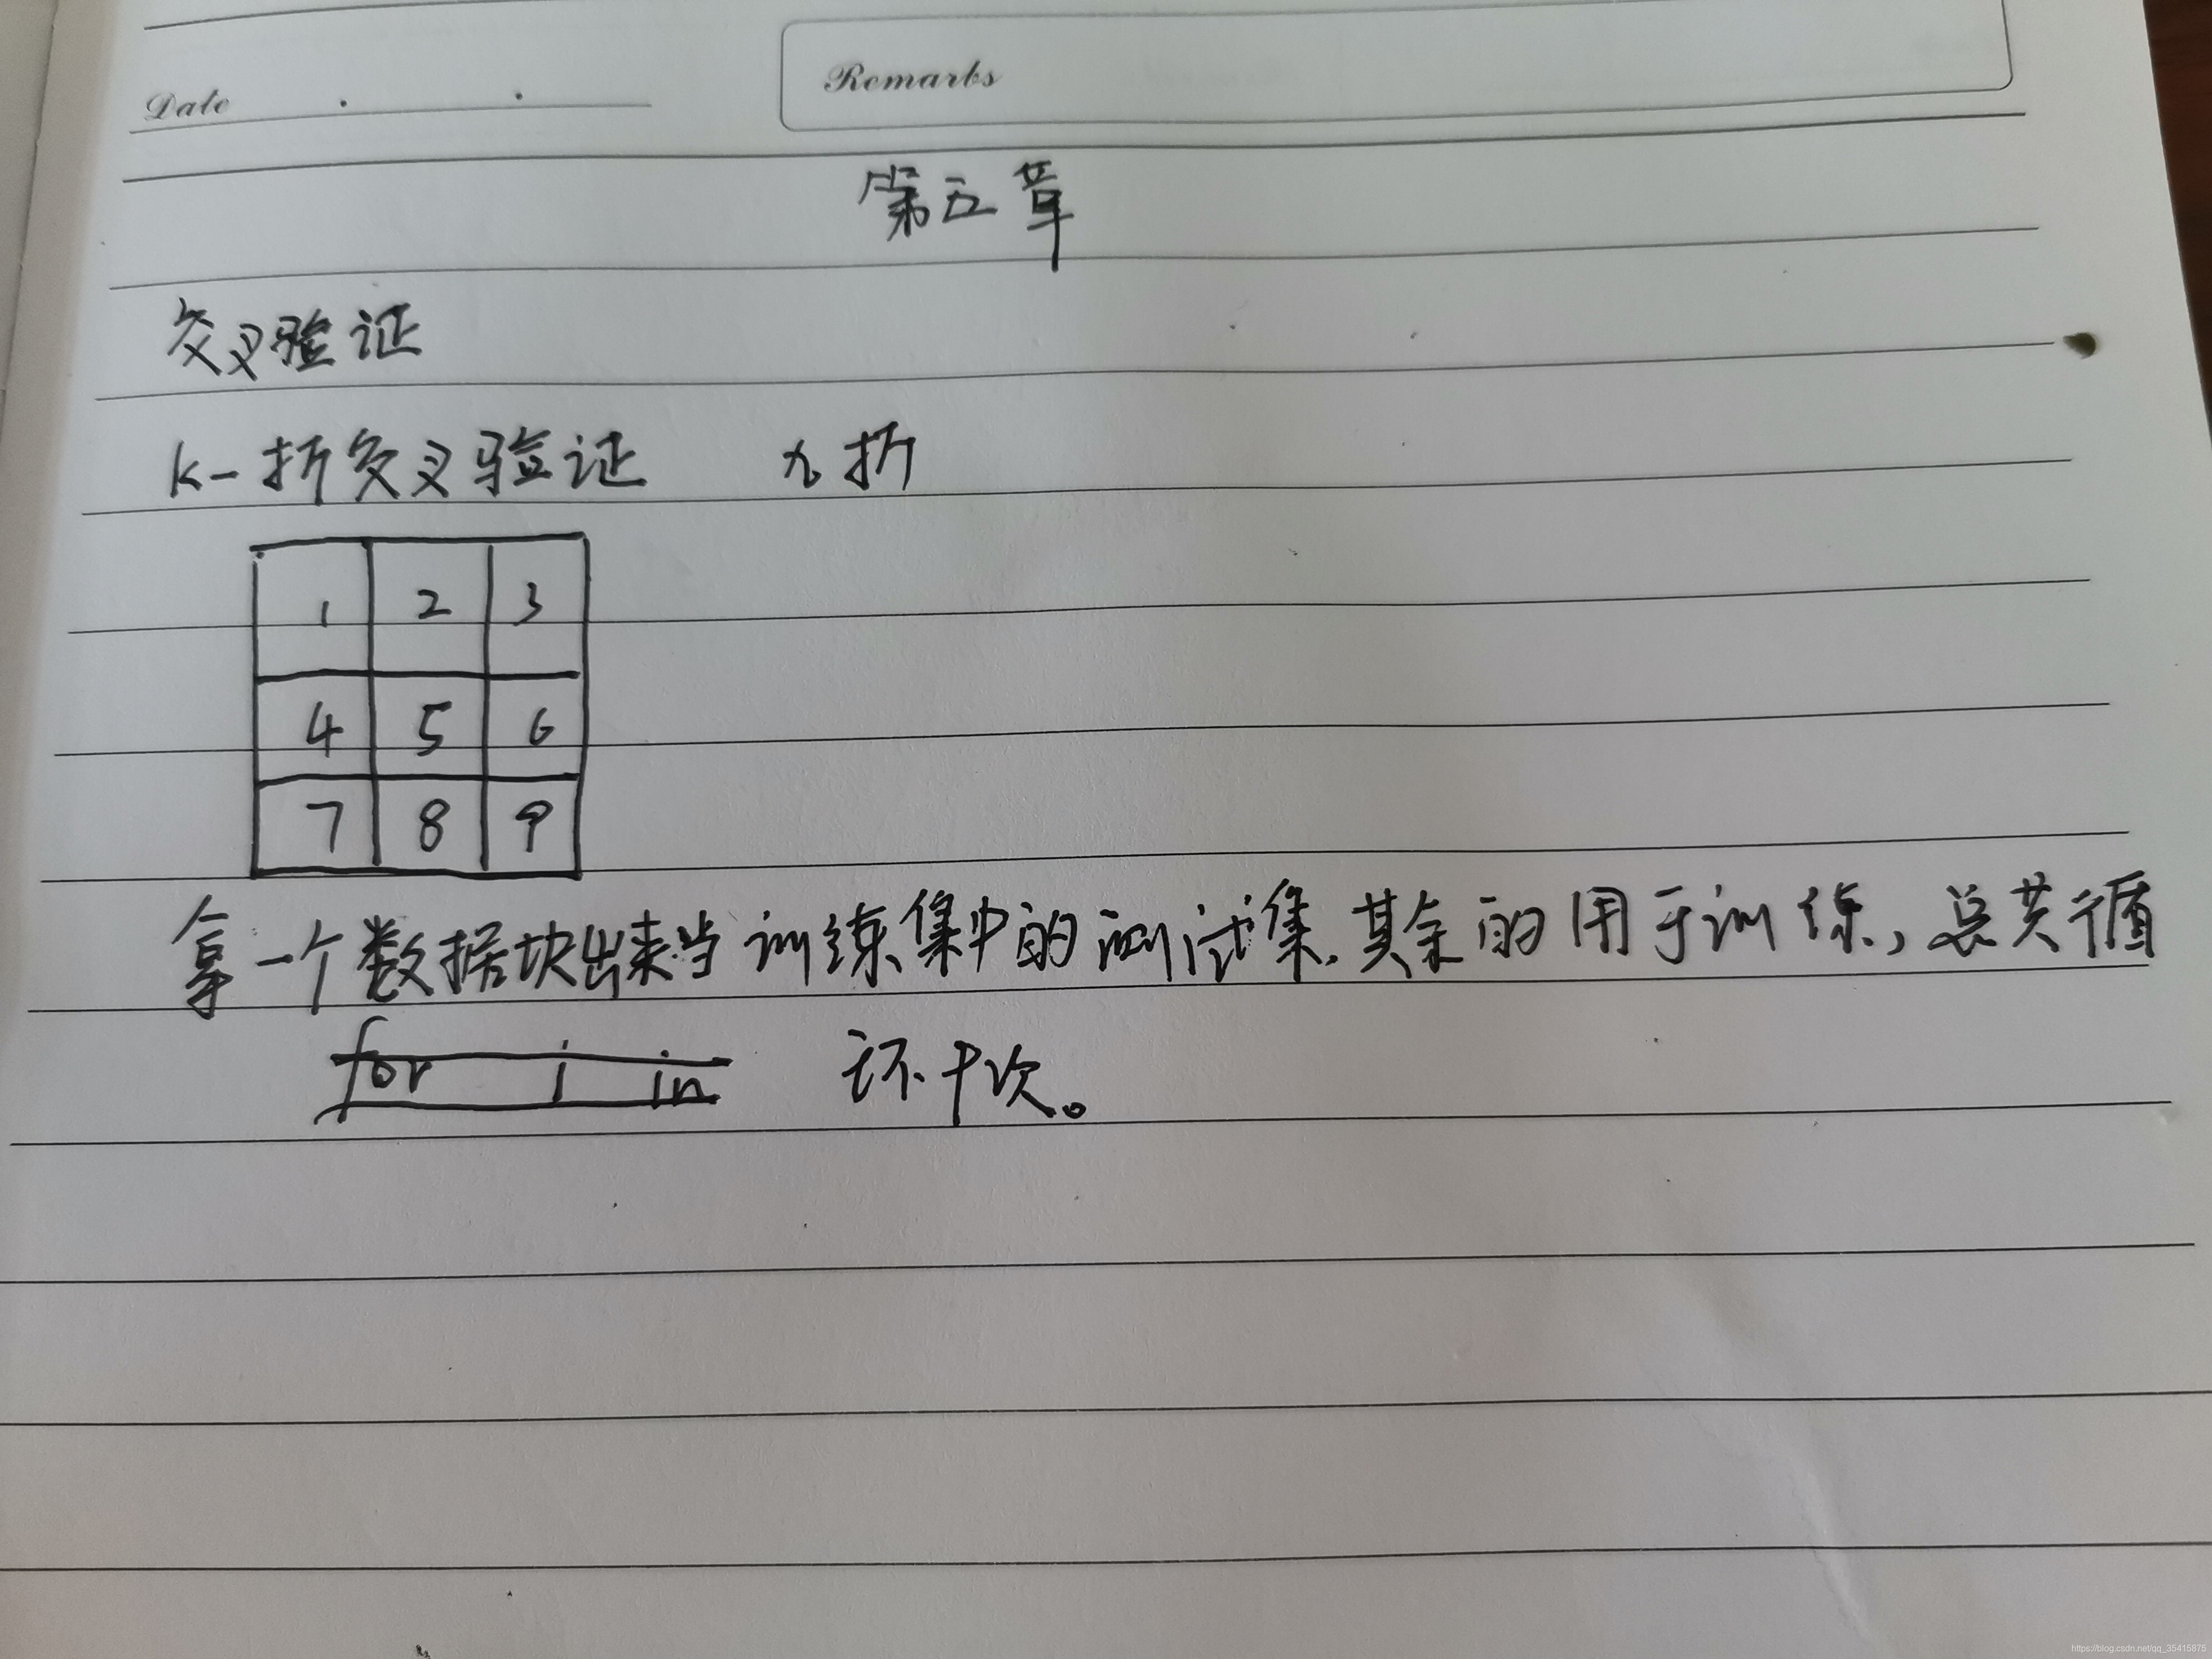 Date . .
Remarks
第五章
交叉验证
k-折交叉验证 九折
1 2 3
4 5 6
7 8 9
拿一个数据块出来当训练集中的测试集,其余的用于训练,总共循
for i in 环十次。
https://blog.csdn.net/qq_35415875